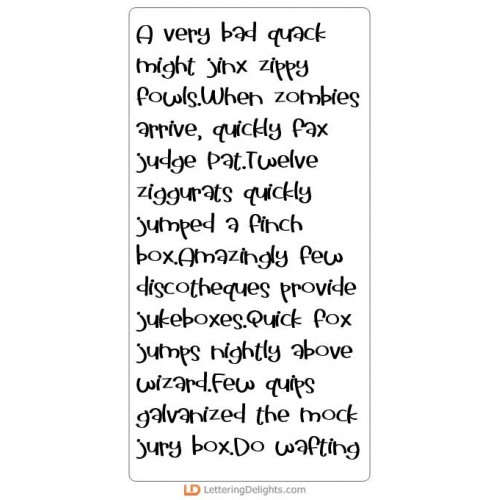 A very bad quack
might jinx zippy
fowls.When zombies
arrive, quickly fax
judge Pat.Twelve
ziggurats quickly
jumped a finch
box.Amazingly few
discotheques provide
jukeboxes.Quick fox
jumps nightly above
wizard.Few quips
galvanized the mock
jury box.Do wafting
LD LetteringDelights.com